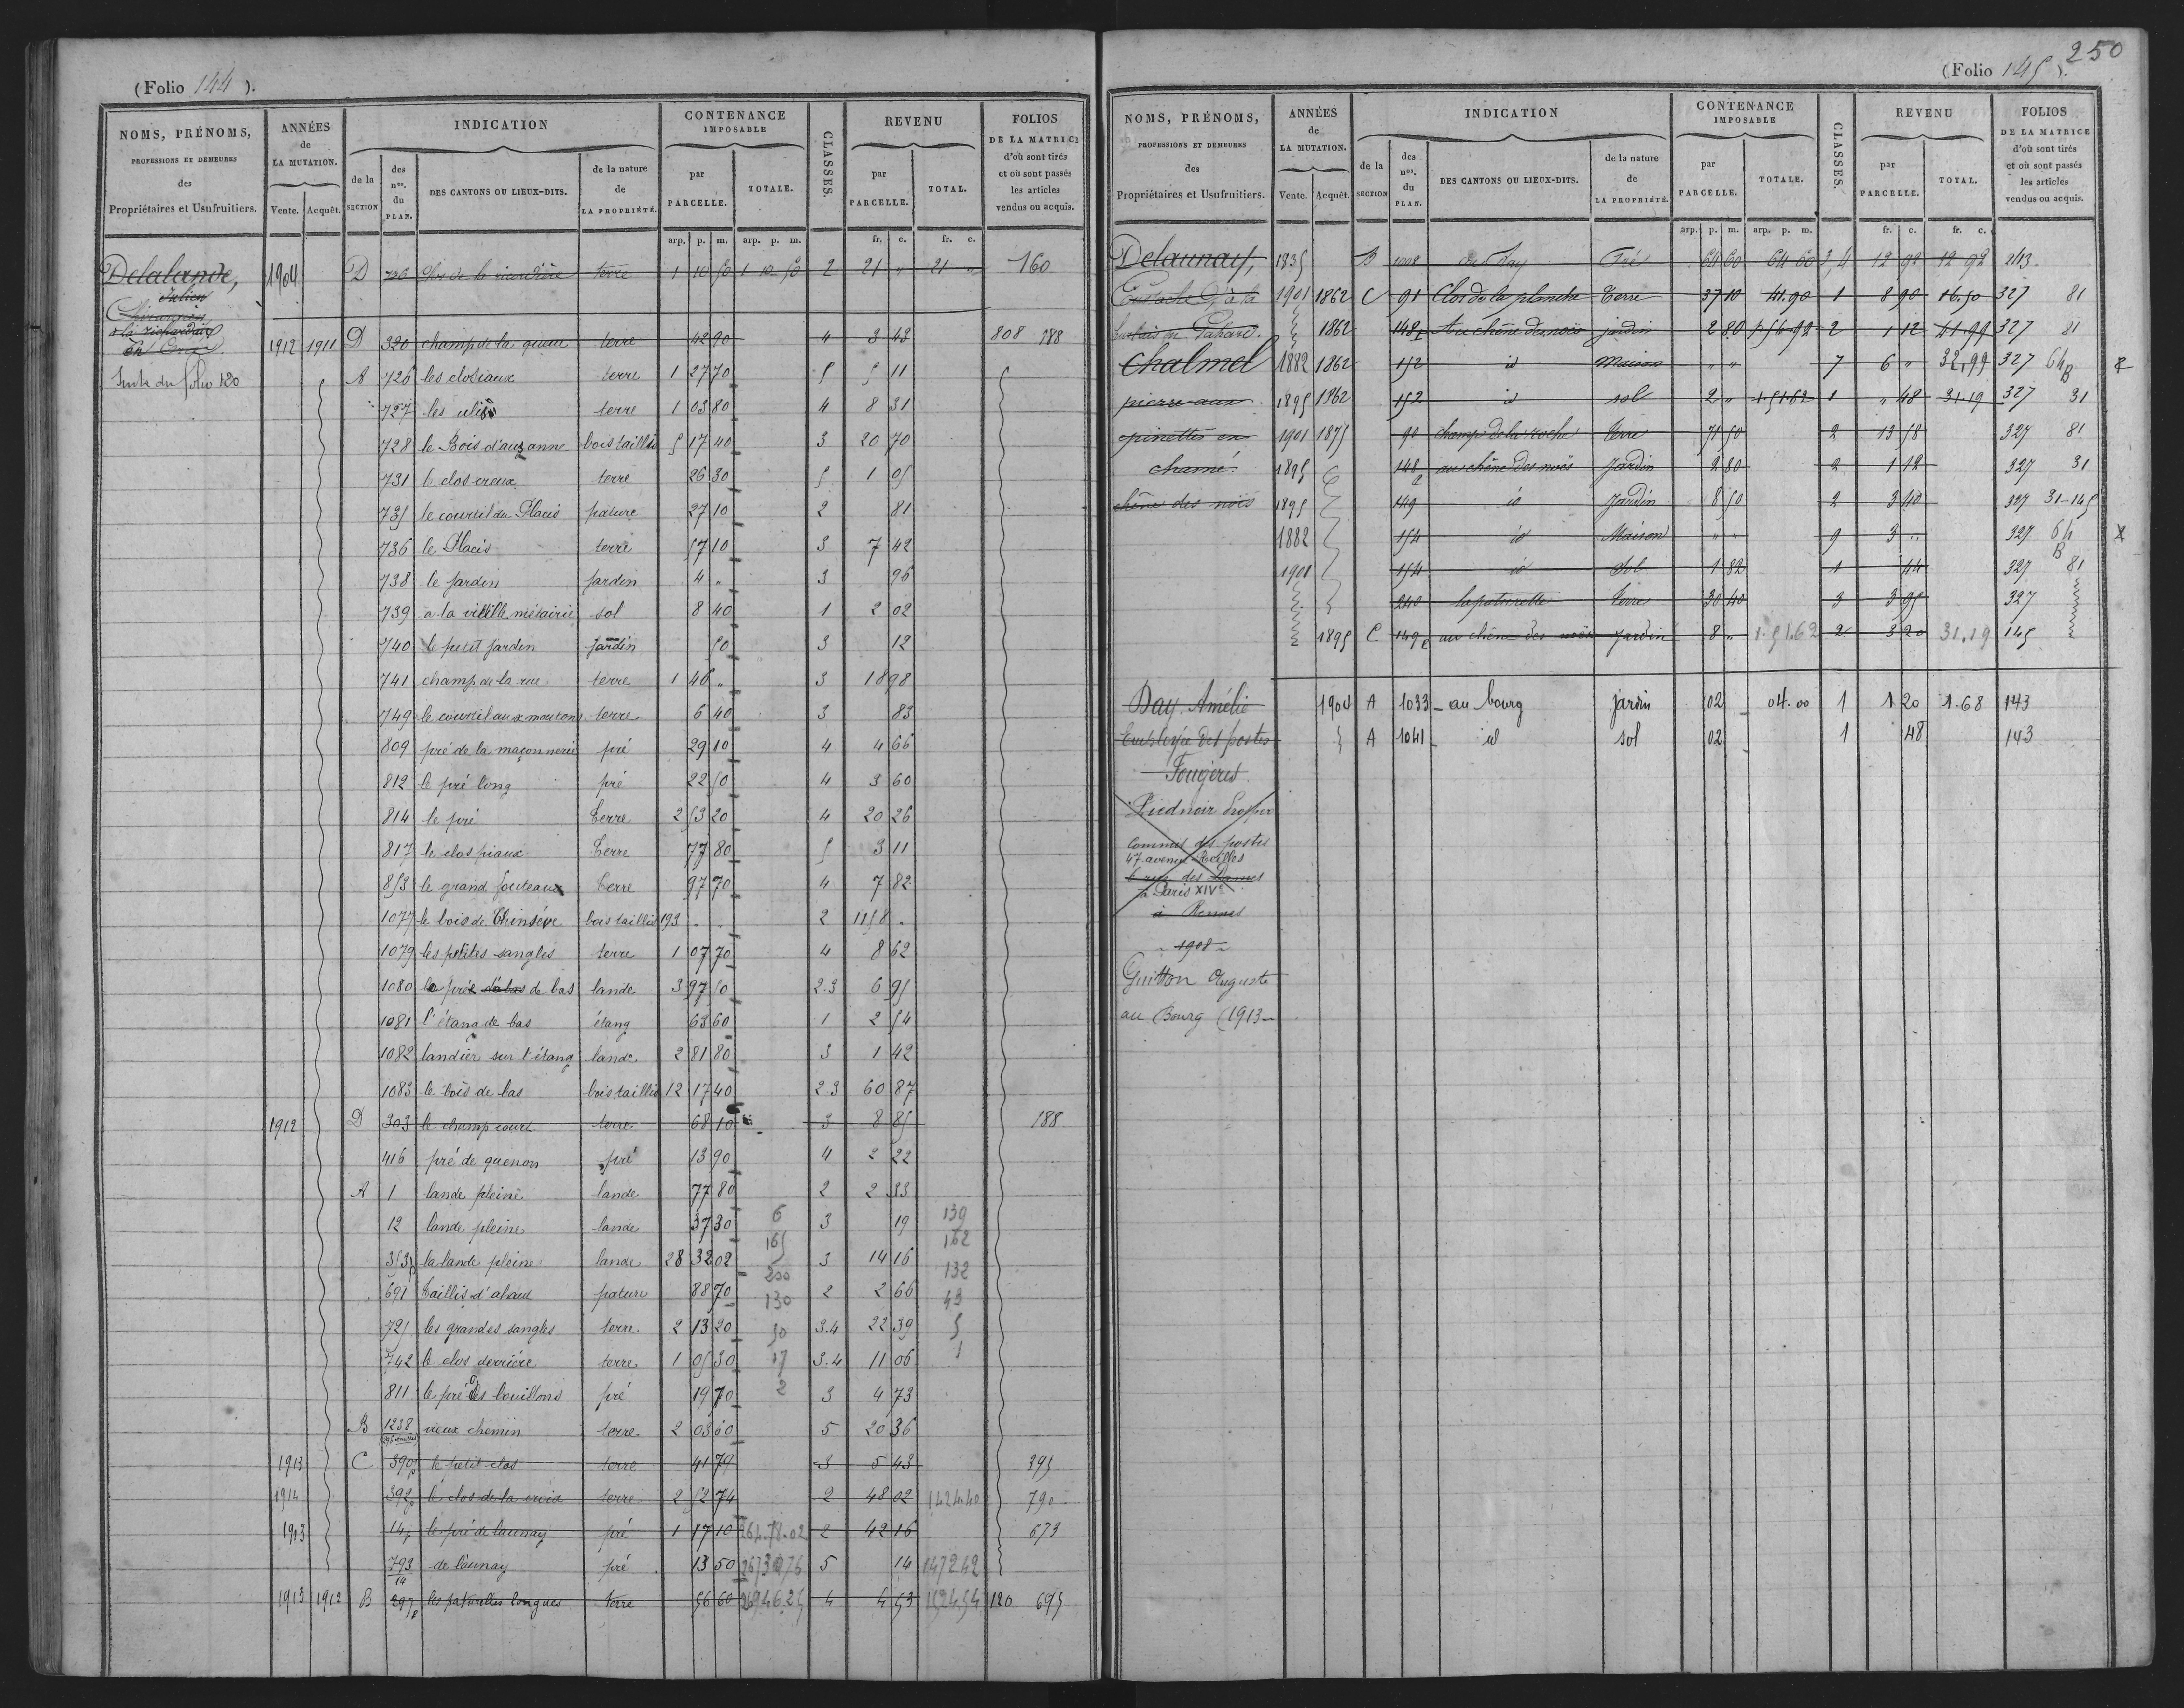 (Folio 144 ).
NOMS, PRÉNOMS, PROFESSIONS ET DEMEURES des Propriétaires et Usufruitiers.
ANNÉES de LA MUTATION. Vente. Acquêt.
INDICATION de la SECTION des nos. du PLAN. DES CANTONS OU LIEUX-DITS. de la nature de LA PROPRIÉTÉ.
CONTENANCE IMPOSABLE par PARCELLE. TOTALE.
CLASSES.
REVENU par PARCELLE. TOTAL.
FOLIOS DE LA MATRICE d'où sont tirés et où sont passés les articles vendus ou acquis.
arp. p. m. arp. p. m. fr. c. fr. c.
Delalande, 1904 D terre 1 10 50 1 10 50 2 21 " 21 " 160
Julien
1912 1911 D 320 champ de la queue terre 42 90 4 3 43 808 188
Suite du folio 120
A 726 les clotiaux terre 1 27 70 5 5 11
727 terre 1 03 80 4 8 31
728 le Bois d'auzanne bois taillis 5 17 40 3 20 70
731 le clos creux terre 26 30 5 1 05
735 le courtil du Placis pature 27 10 2 81
736 le Placis terre 57 10 3 7 42
738 le jardin jardin 4 " 3 96
739 à la vieille métairie sol 8 40 1 2 02
740 le petit jardin jardin 50 3 12
741 champ de la rue terre 1 46 " 3 18 98
749 le courtil aux moutons terre 6 40 3 83
809 pré de la maçonnerie pré 29 10 4 4 66
812 le pré long pré 22 50 4 3 60
814 le pré terre 2 53 20 4 20 26
817 le clos piaux terre 77 80 5 3 11
853 le grand fouteaux terre 97 70 4 7 82
1077 le bois de Chinsève bois taillis 193 " " 2 1158 "
1079 les petites sangles terre 1 07 70 4 8 62
1080 le pré de bas lande 3 97 50 2.3 6 95
1081 l'étang de bas étang 63 60 1 2 54
1082 landier sur l'étang lande 2 81 80 3 1 42
1083 le bois de bas bois taillis 12 17 40 2.3 60 87
1912 D 303 le champ court terre 68 10 3 8 85 188
416 pré de quenon pré 13 90 4 2 22
A 1 lande pleine lande 77 80 2 2 33
12 lande pleine lande 37 30 6 3 19 139
165 162
353p la lande pleine lande 28 32 02 3 14 16
200 132
691 taillis d'abaut pature 88 70 130 2 2 66 43
721 les grandes sangles terre 2 13 20 50 3.4 22 39 5
742 le clos derrière terre 1 05 30 17 3.4 11 06 1
811 le pré des bouillons pré 19 70 2 3 4 73
B 1238 vieux chemin terre 2 03 60 5 20 36
1913 C 390p le petit clos terre 41 79 3 5 43 395
1914 392p le clos de la croix terre 2 52 74 2 48 02 1424.40 790
1913 14p le pré de launay pré 1 17 10 264.78.02 2 42 16 673
793 de launay pré 13 50 5 14 1472 42
14
1913 1912 B 297p les paturelles longues terre 56 60 2694625 4 4 53 152454 120 695
250
(Folio 145 ).
NOMS, PRÉNOMS, PROFESSIONS ET DEMEURES des Propriétaires et Usufruitiers.
ANNÉES de LA MUTATION. Vente. Acquêt.
INDICATION de la SECTION des nos. du PLAN. DES CANTONS OU LIEUX-DITS. de la nature de LA PROPRIÉTÉ.
CONTENANCE IMPOSABLE par PARCELLE. TOTALE.
CLASSES.
REVENU par PARCELLE. TOTAL.
FOLIOS DE LA MATRICE d'où sont tirés et où sont passés les articles vendus ou acquis.
arp. p. m. arp. p. m. fr. c. fr. c.
Delaunay, 1835 B 1008 Pré 64 60 64 60 3,4 12 92 12 92
Eustache 1901 1862 C 91 Clos de la planche terre 37 10 41.90 1 8 90 16.50 327 81
1862 148p Au chêne des noës jardin 2 80 1.54.92 2 1 12 41.99 327 81
Chalmel 1882 1862 152 id Maison " " 7 6 " 32,99 327 64 B
pierre aux 1895 1862 152 id sol 2 " 1.51.62 1 " 48 31.19 327 31
épinettes en 1901 1875 90 champ de la roche terre 71 50 2 13 58 327 81
chamé. 1895 148p au chêne des noës jardin 2 80 2 1 12 327 31
chêne des noës 1895 149 id Jardin 8 50 2 3 40 327 31-145
1882 154 id Maison " " 9 3 " 327 64 B
1901 154 id Sol 1 82 1 44 327 81
240 la paturette terre 30 40 3 3 95 327
1895 C 149p au chêne des noës Jardin 8 " 1.51.62 2 3 20 31,19 145
Day Amélie 1904 A 1033 au bourg jardin 02 04.00 1 1 20 1.68 143
Employée des postes A 1041 id sol 02 1 48 143
Fougères
Piednoir Prosper
Commis des postes
47 avenue
6 rue des Dames
à Paris XIVe
à Rennes
1908
Guitton Auguste
au Bourg (1913